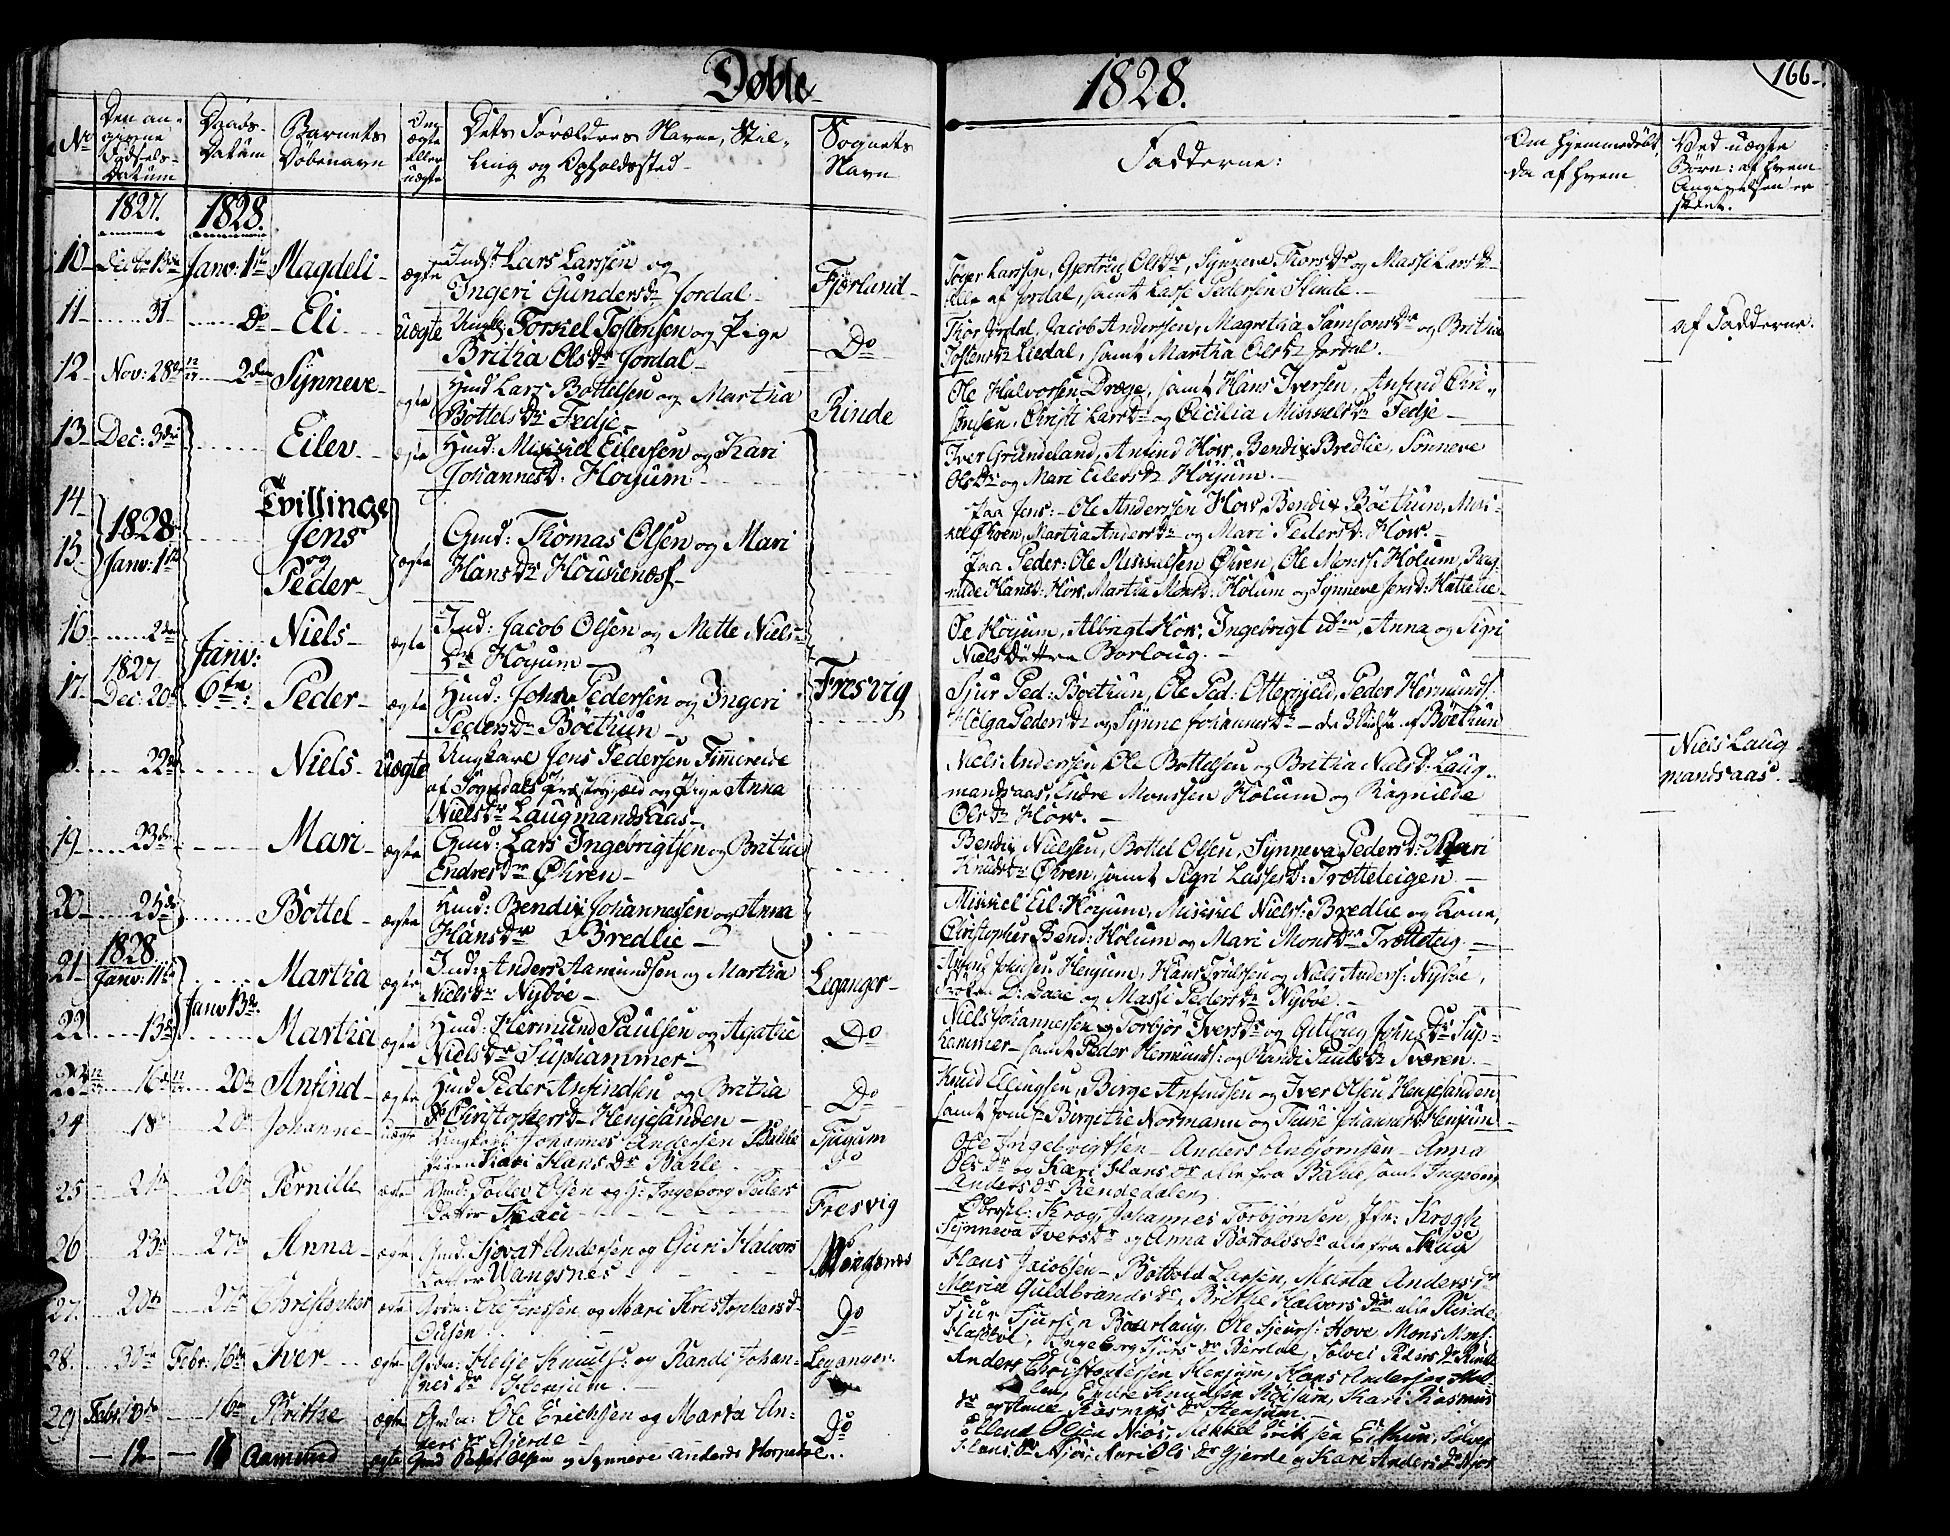 Døbte
1828.
166.
No
Den an-
givne
Fødsels-
Datum
Daabs-
Datum
Barnets
Døbenavn
Om
ægte
eller
uægte
Dets Forældres Navne, Stil-
ling og Opholdssted
Sognets
Navn
Fadderne:
Om hjemmedøbt,
da af hvem
Ved uægte
Børn: af hvem
Angivelsen er
skeet.
1827.
1828.
10 Decbr 13de Janv: 1ste Magdeli ægte Inds: Lars Larssen og
Ingeri Gundersdr Jordal
Fjærland
Lars Larssen, Gjertrug Olsdr, Synneve Thorsdr og Massi Larsdr
Alle af Jordal, samt Lasse Pedersen
11 31 do Eli uægte Ungk: Torkel Tostensen og Pige
Britha Olsdr Jordal
Do
Thor Jordal, Jacob Anderssen, Magretha Samsonsdr og Britha
Tostensdr Liedal, samt Martha Olsdr Jordal.
af Fadderne.
12 Nov: 28de 2den Synneve ægte Hmd Lars Bottelsen og Martha
Bottelsdr Fedje
Rinde
Ole Halvorsen Drægo, samt Hans Iversen, Anfind Chri-
stensen, Christi Larsdr og Cicilia Mikkelsdr Fedje
13 Dec: 3die Eilev ægte Hmd: Mikkel Eilevsen og Kari
Johannesd: Høyum
Iver Grandeland, Anfind Hove, Bendix Bredlie, Synneve
Olsdr og Mari Eilersdr Høyum.
14
15
1828
Janv: 1ste
Tvillinge
Jens
og
Peder
ægte Gmd: Thomas Olsen og Mari
Hansdr
paa Jens: Ole Anderssen Hove, Bendix Böetun, Mik-
kel Øhren, Martha Andersdr og Mari Pedersd: Hove.
paa Peder: Ole Mikkelsen Øhren, Ole Monss: Holum, Rag-
nilde Hansd: Hove, Martha Monsd: Holum og Synneve Jensd: Hattelie
16 2den Janv: Niels ægte Ind: Jacob Olsen og Mette Niels
Dr Høyum
Ole Høyum, Albrigt Hove, Ingebrigt idm, Anna og Sigri
Niels Døttre Borloug.
17 1827
Dec: 20de 6te: Peder ægte Hmd: John Pedersen og Ingeri
Pedersdr Böetun
Fresvig
Siur Ped: Böetun, Ole Ped: Otterskjeld, Peder Hermunds:
Helga Pedersdr og Synne Johannesdr de 3 sidste af Böetun
22de Niels uægte Ungkarl Jens Pedersen Timereide
af Sogndals Præstegjeld og Pige Anna
Nielsdr Laugmandsaas
Niels Anderssen, Ole Bottelsen og Britha Nielsd: Laug-
mandsaas, Endre Monssen Holum og Ragnilde
Olsdr Hove.
Niels Laug
mandsaas.
19 23de Mari ægte Gmd: Lars Ingebrigtsen og Britha
Endresdr Øhren
Bendix Nielsen, Bottel Olsen, Synneva Pedersd: Mari
Knudsdr Øhren, samt Sigri Lassesd: Trætteteigen
20 25de Bottel ægte Hmd: Bendix Johannessen og Anna
Hansdr Bredlie
Mikkel Eil: Høyum, Mikkel Niels: Bredlie og Kone,
Christopher Bend: Holum og Mari Monsdr Trætteteig.
21 1828
Janv: 11te Martha ægte Ind: Anders Aamundsen og Martha
Nielsdr Nybøe
Leganger
Anfind Johnsen Henjum, Hans Trulsen og Niels Anders: Nybøe,
D: Daae og Massi Pedersdr Nybøe.
22 13de Janv 13de. Martha ægte Hmd: Hermund Paulsen og Agathe
Nielsdr Suphammer
Do
Niels Johannessen og Torbjør Iversdr og Gitloug Johnsdr Sup-
hammer samt Peder Hermunds: og Randi Paulsdr Sværen.
23 16de 20de Anfind ægte Hmd Peder Anfindsen og Britha
Christophersdr Henjesanden
Do
Knud Ellingsen, Børge Anfindsen og Iver Olsen Henjesanden
samt Jomf: Birgithe Normann og Thue Johannesdr Henjum
24 18 20de Johanne uægte Ungkarl Johannes Andersen Bahle
Pigen Kari Hansdr Bahle
Tjugum
Do
Ole Ingebrigtsen Anders Anbjørnsen Anna
Olsdr og Kari Hansdr alle fra Bahle samt Ingeborg
Andersdr Rendedalen
25 20de Pernille ægte Gmd: Tollev Olsen og H: Ingeborg Peders
Datter Skau
Fresvig
Krog, Johannes Torbjørnsen, Jfr: Krogh
Synneva Iversdr og Anna Bottolsdr alle fra Skau
26 23de 27de Anna ægte Gmd: Sjovat Andersen og Guri Halvors
Datter Vangsnes
Vangsnæs
Hans Jacobsen Bottold Larsen, Marta Andersdr
Maria Guldbrandsdr, Brithe Halvorsdr alle Rinde
27. 20de 27de Christopher ægte Gmd: Ole Jenssen og Mari Kristophersd-
Do
Sjur Sjursen Borlaug, Ole Sjurs: Hove Mons Mons:
Ingeborg Sjursdr Berdal, Solvei Pedersdr Rinde
28. 30te Febr: 16de Iver ægte Gmd: Helje Knuds: og Randi Johan-
nesdr Henjum
Leganger
Anders Christophersen Henjum, Hans Andersen
Endre Knudsen Röisum, Kari Rasmus
dr og Anne Rasmusdr Henjum
29 Febr: 10de 16de Brithe ægte Gmd: Ole Erichsen og Marta An-
dersdr Gjerde
Do
Ellend Olsen Niøs, Mikkel Eriksen Eithun, Solvei
Hansdr Njøs, Kari Olsdr Gjerde og Kari Andersdr Njøs
12 16 Aamund ægte Gmd Peder Olsen og Synneve Andersdr